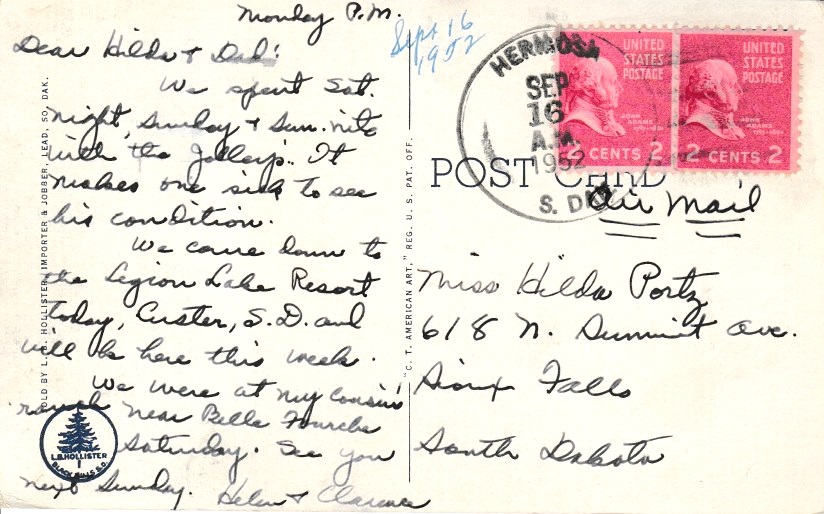 Monday P.M.
Sept 16
1952
Dear Hilda & Dad:
We spent Sat.
night, Sunday & Sun. nite
with the Jolley's. It
makes one sick to see
his condition.
We came down to
the Legion Lake Resort
today, Custer, S.D. and
will be here this week.
We were at my cousin's
ranch near Belle Fourche
Saturday. See you
next Sunday. Helen & Clarence
SOLD BY L. B. HOLLISTER, IMPORTER & JOBBER, LEAD, SO. DAK.
L.B. HOLLISTER
BLACK HILLS S.D.
"C. T. AMERICAN ART," REG. U. S. PAT. OFF.
HERMOSA
SEP
16
A.M.
1952
S. DAK.
UNITED
STATES
POSTAGE
JOHN
ADAMS
2 CENTS 2
UNITED
STATES
POSTAGE
JOHN
ADAMS
2 CENTS 2
POST CARD
Air Mail
Miss Hilda Portz
618 N. Summit Ave.
Sioux Falls
South Dakota